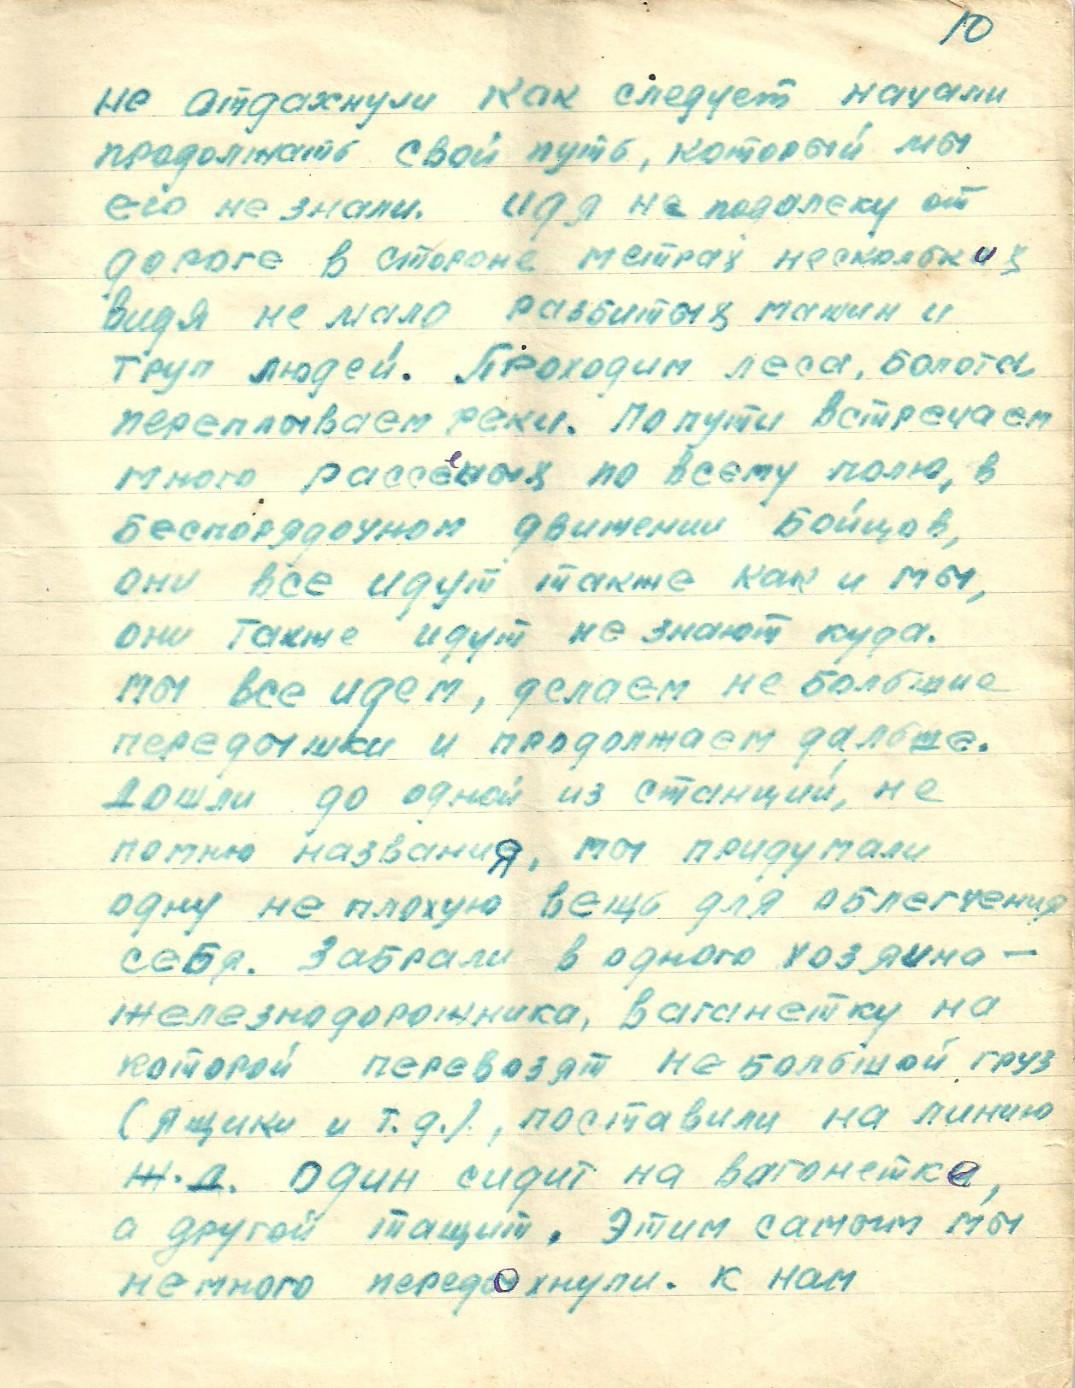 10
не отдахнули как следует начали
продолжать свой путь, который мы
его не знали. Идя не подалеку от
дороге в стороне метрах нескольких
видя не мало разбитых машин и
труп людей. Проходим леса, болота,
переплываем реки. По пути встречаем
много рассеных по всему полю, в
беспорядочном движении бойцов,
они все идут также как и мы,
они также идут не знают куда.
Мы все идем, делаем не большие
передышки и продолжаем дальше.
Дошли до одной из станций, не
помню названия, мы придумали
одну не плохую вещь для облегчения
себя. Забрали в одного хозяина —
железнодорожника, ваганетку на
которой перевозят не большой груз
(ящики и т.д.)., поставили на линию
Ж.Д. один сидит на вагонетке,
а другой тащит. Этим самым мы
немного передохнули. К нам